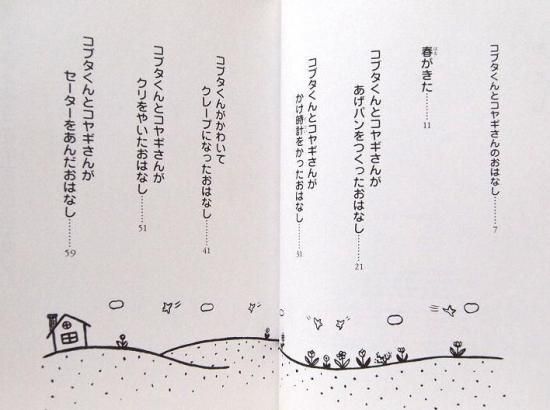 コブタくんとコヤギさんのおはなし……7
春がきた……11
はる
コブタくんとコヤギさんが
あげパンをつくったおはなし……21
コブタくんとコヤギさんが
かけ時計をかったおはなし……31
コブタくんがかわいて
クレープになったおはなし……41
コブタくんとコヤギさんが
クリをやいたおはなし……51
コブタくんとコヤギさんが
セーターをあんだおはなし……59